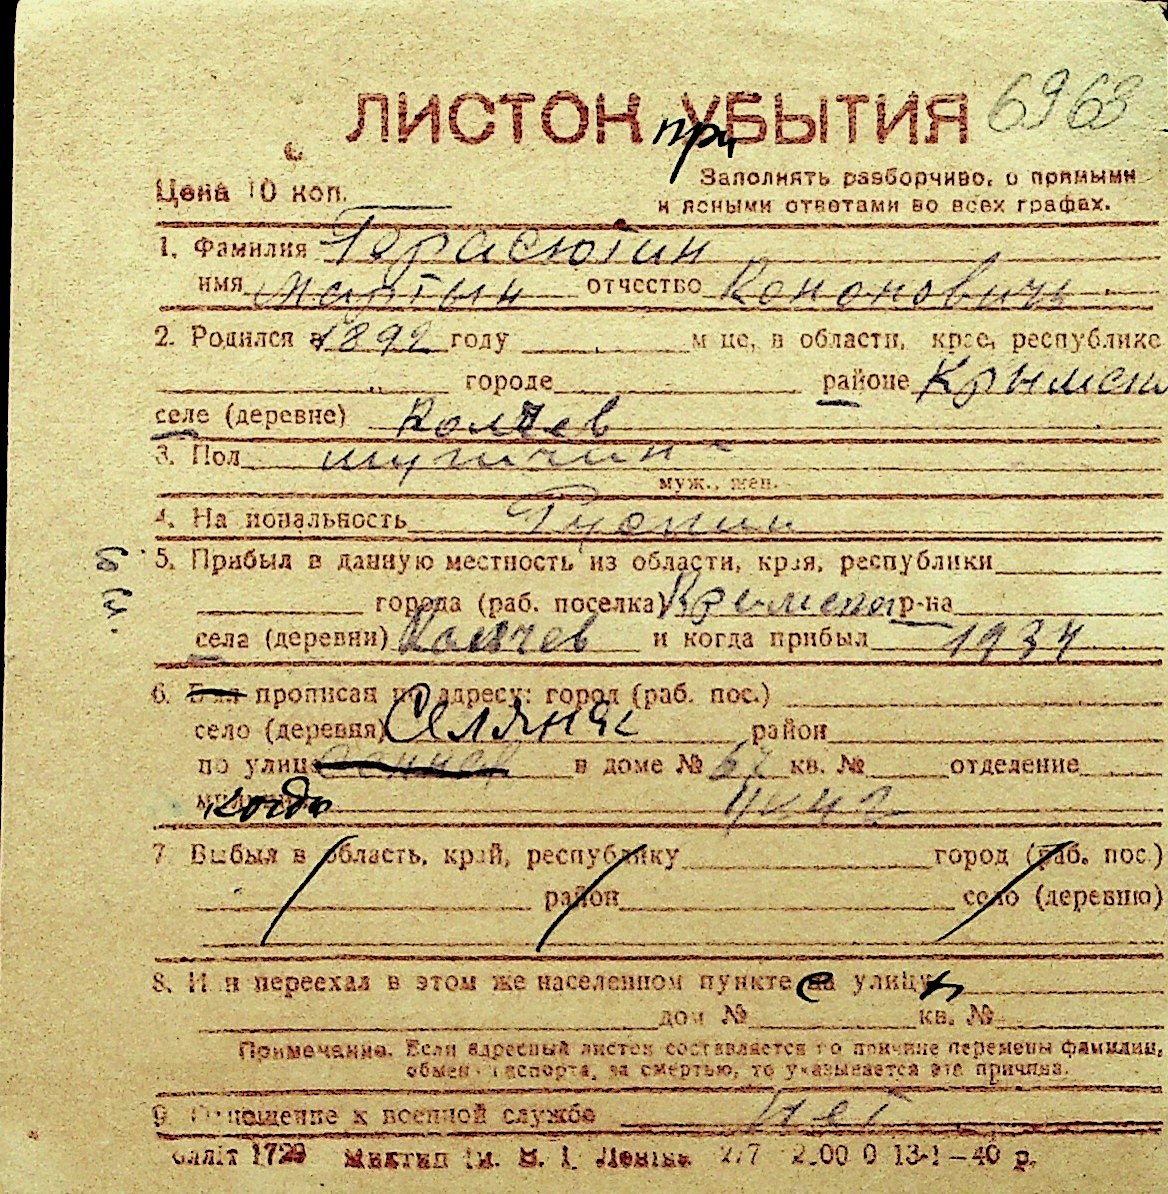 ЛИСТОК при УБЫТИЯ 6963
Цена 10 коп.
Заполнять разборчиво, о прямыми
и ясными ответами во всех графах.
1. Фамилия Герасютин
имя Мартын отчество Кононовичь
2. Родился в 1892 году м це, в области, крае, республике
городе районе Крымском
селе (деревне) Колчев
3. Пол мущчина
муж., жен.
4. На иональность Руский
5. Прибыл в данную местность из области, края, республики
города (раб. поселка) Крымског р-на
села (деревни) Колчев и когда прибыл 1934
6. Был прописан по адресу: город (раб. пос.)
село (деревня) Селяняк район
по улице в доме № 67 кв. № отделение
когда
7 Выбыл в область, край, республику город (раб. пос.)
район село (деревню)
8. И и переехал в этом же населенном пункте с на улицу
дом № кв. №
Примечание. Если адресный листок составляется по причине перемены фамилии,
обмен паспорта, за смертью, то указывается эта причина.
9 Отношение к военной службе Нет
1729 Миктип Ім. В. І. Леніна 277 2.00 0 13-1-40 р.